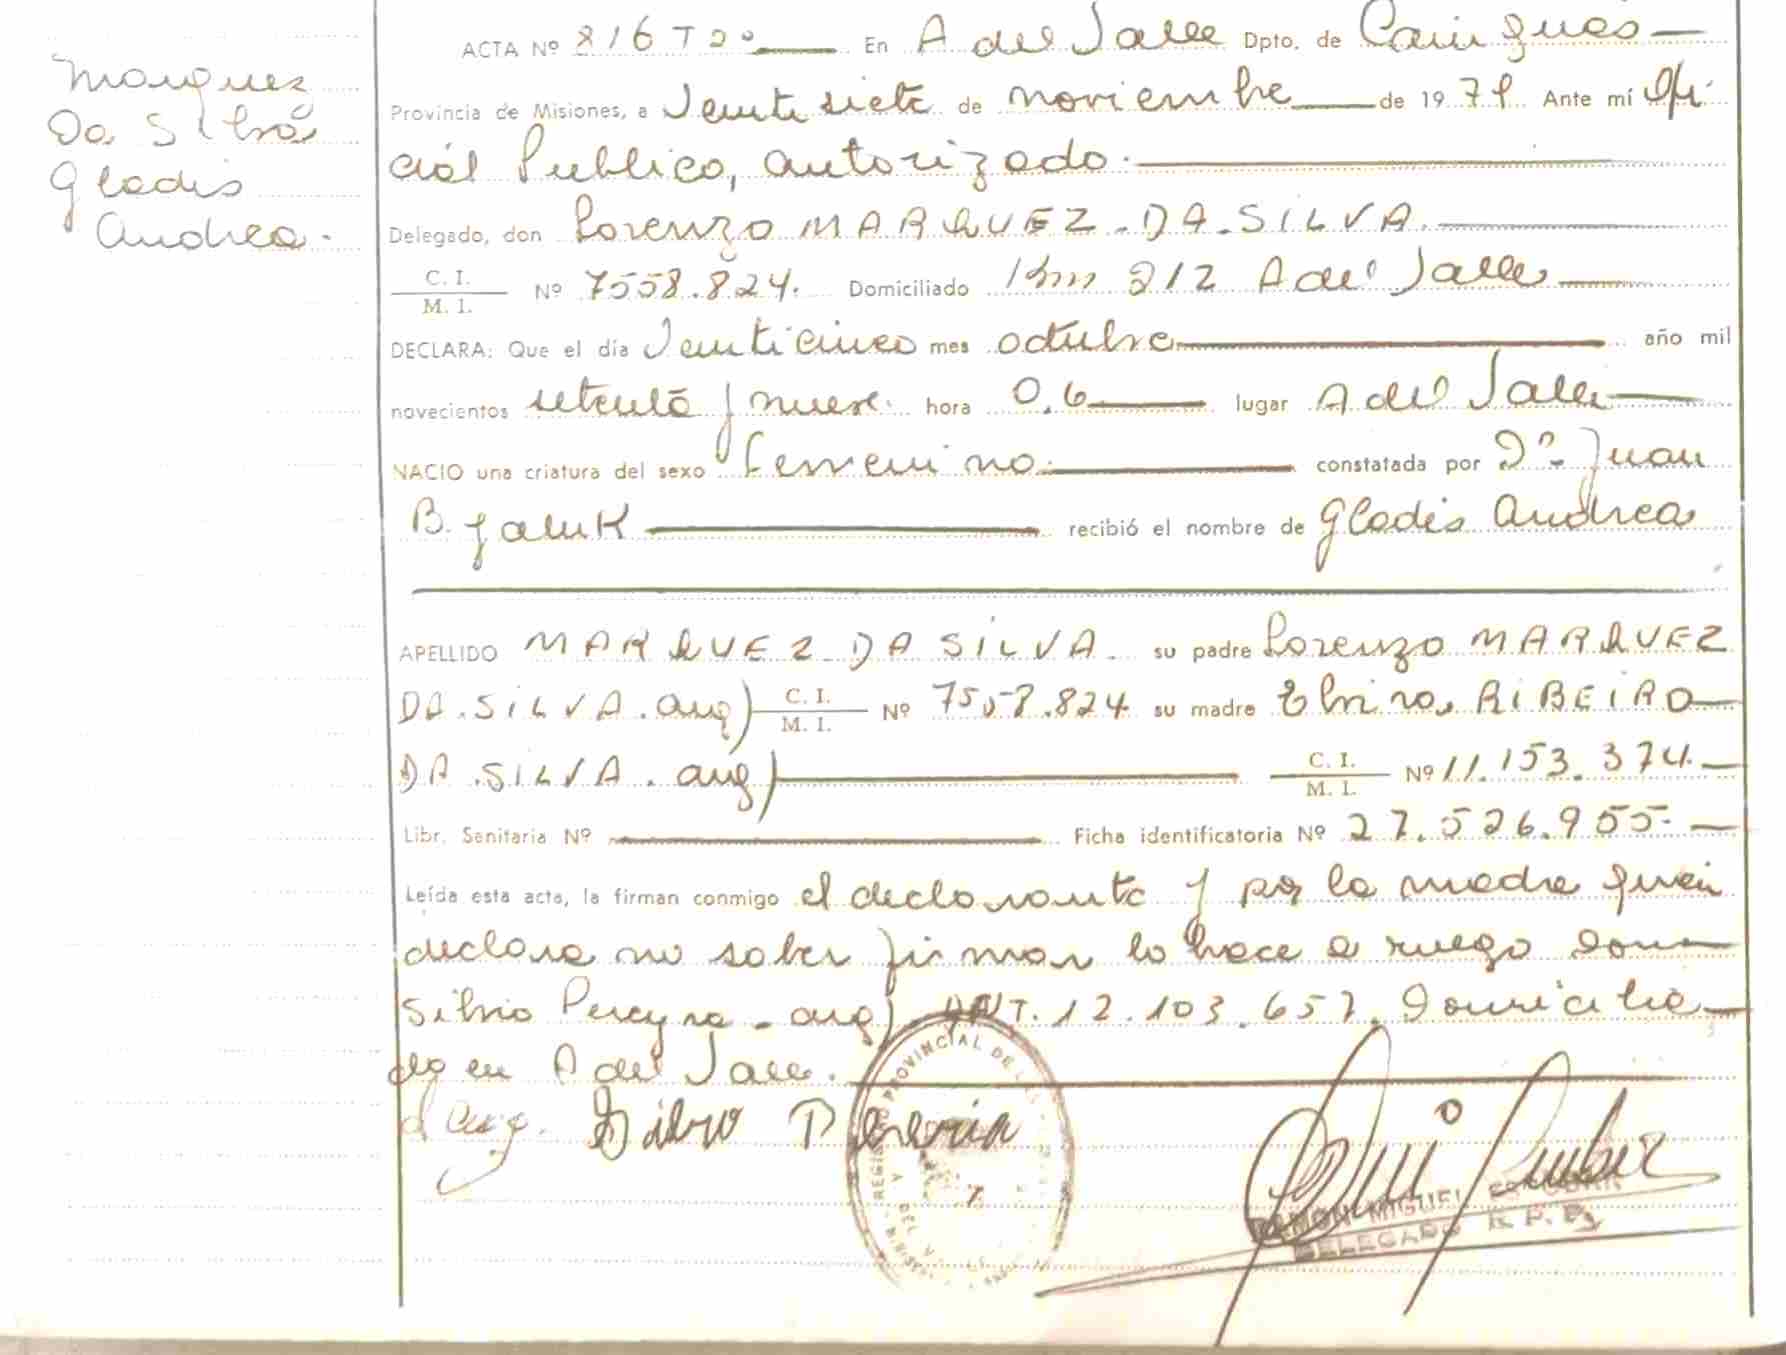 Marquez
Da Silva
Gladis
Andrea.
ACTA Nº 816 Tº En A del Valle Dpto. de Cainguas
Provincia de Misiones, a Veintisiete de noviembre de 1979. Ante mí Ofi
cial Publico, autorizado.
Delegado, don Lorenzo MARQUEZ DA SILVA.
C. I. / M. I. Nº 7558.824. Domiciliado Km 212 A del Valle
DECLARA: Que el día Veinticinco mes octubre año mil
novecientos setenta y nueve. hora 0.6 lugar A del Valle
NACIO una criatura del sexo femenino. constatada por Dº Juan
B. recibió el nombre de Gladis Andrea
APELLIDO MARQUEZ DA SILVA. su padre Lorenzo MARQUEZ
DA. SILVA. arg) C. I. / M. I. Nº 7558.824 su madre Elvira RIBEIRO
DA. SILVA. arg) C. I. / M. I. Nº 11.153.374.
Libr. Sanitaria Nº Ficha identificatoria Nº 27.526.955.
Leída esta acta, la firman conmigo el declarante y por la madre quien
declara no saber firmar lo hace a ruego don
Silvio Pereyra - arg) DNI. 12.103.657. Domicilia
do en A del Valle.
Silvio Pereria
REGISTRO PROVINCIAL DE
RAMON MIGUEL ESCOBAR
DELEGADO R. P. P.